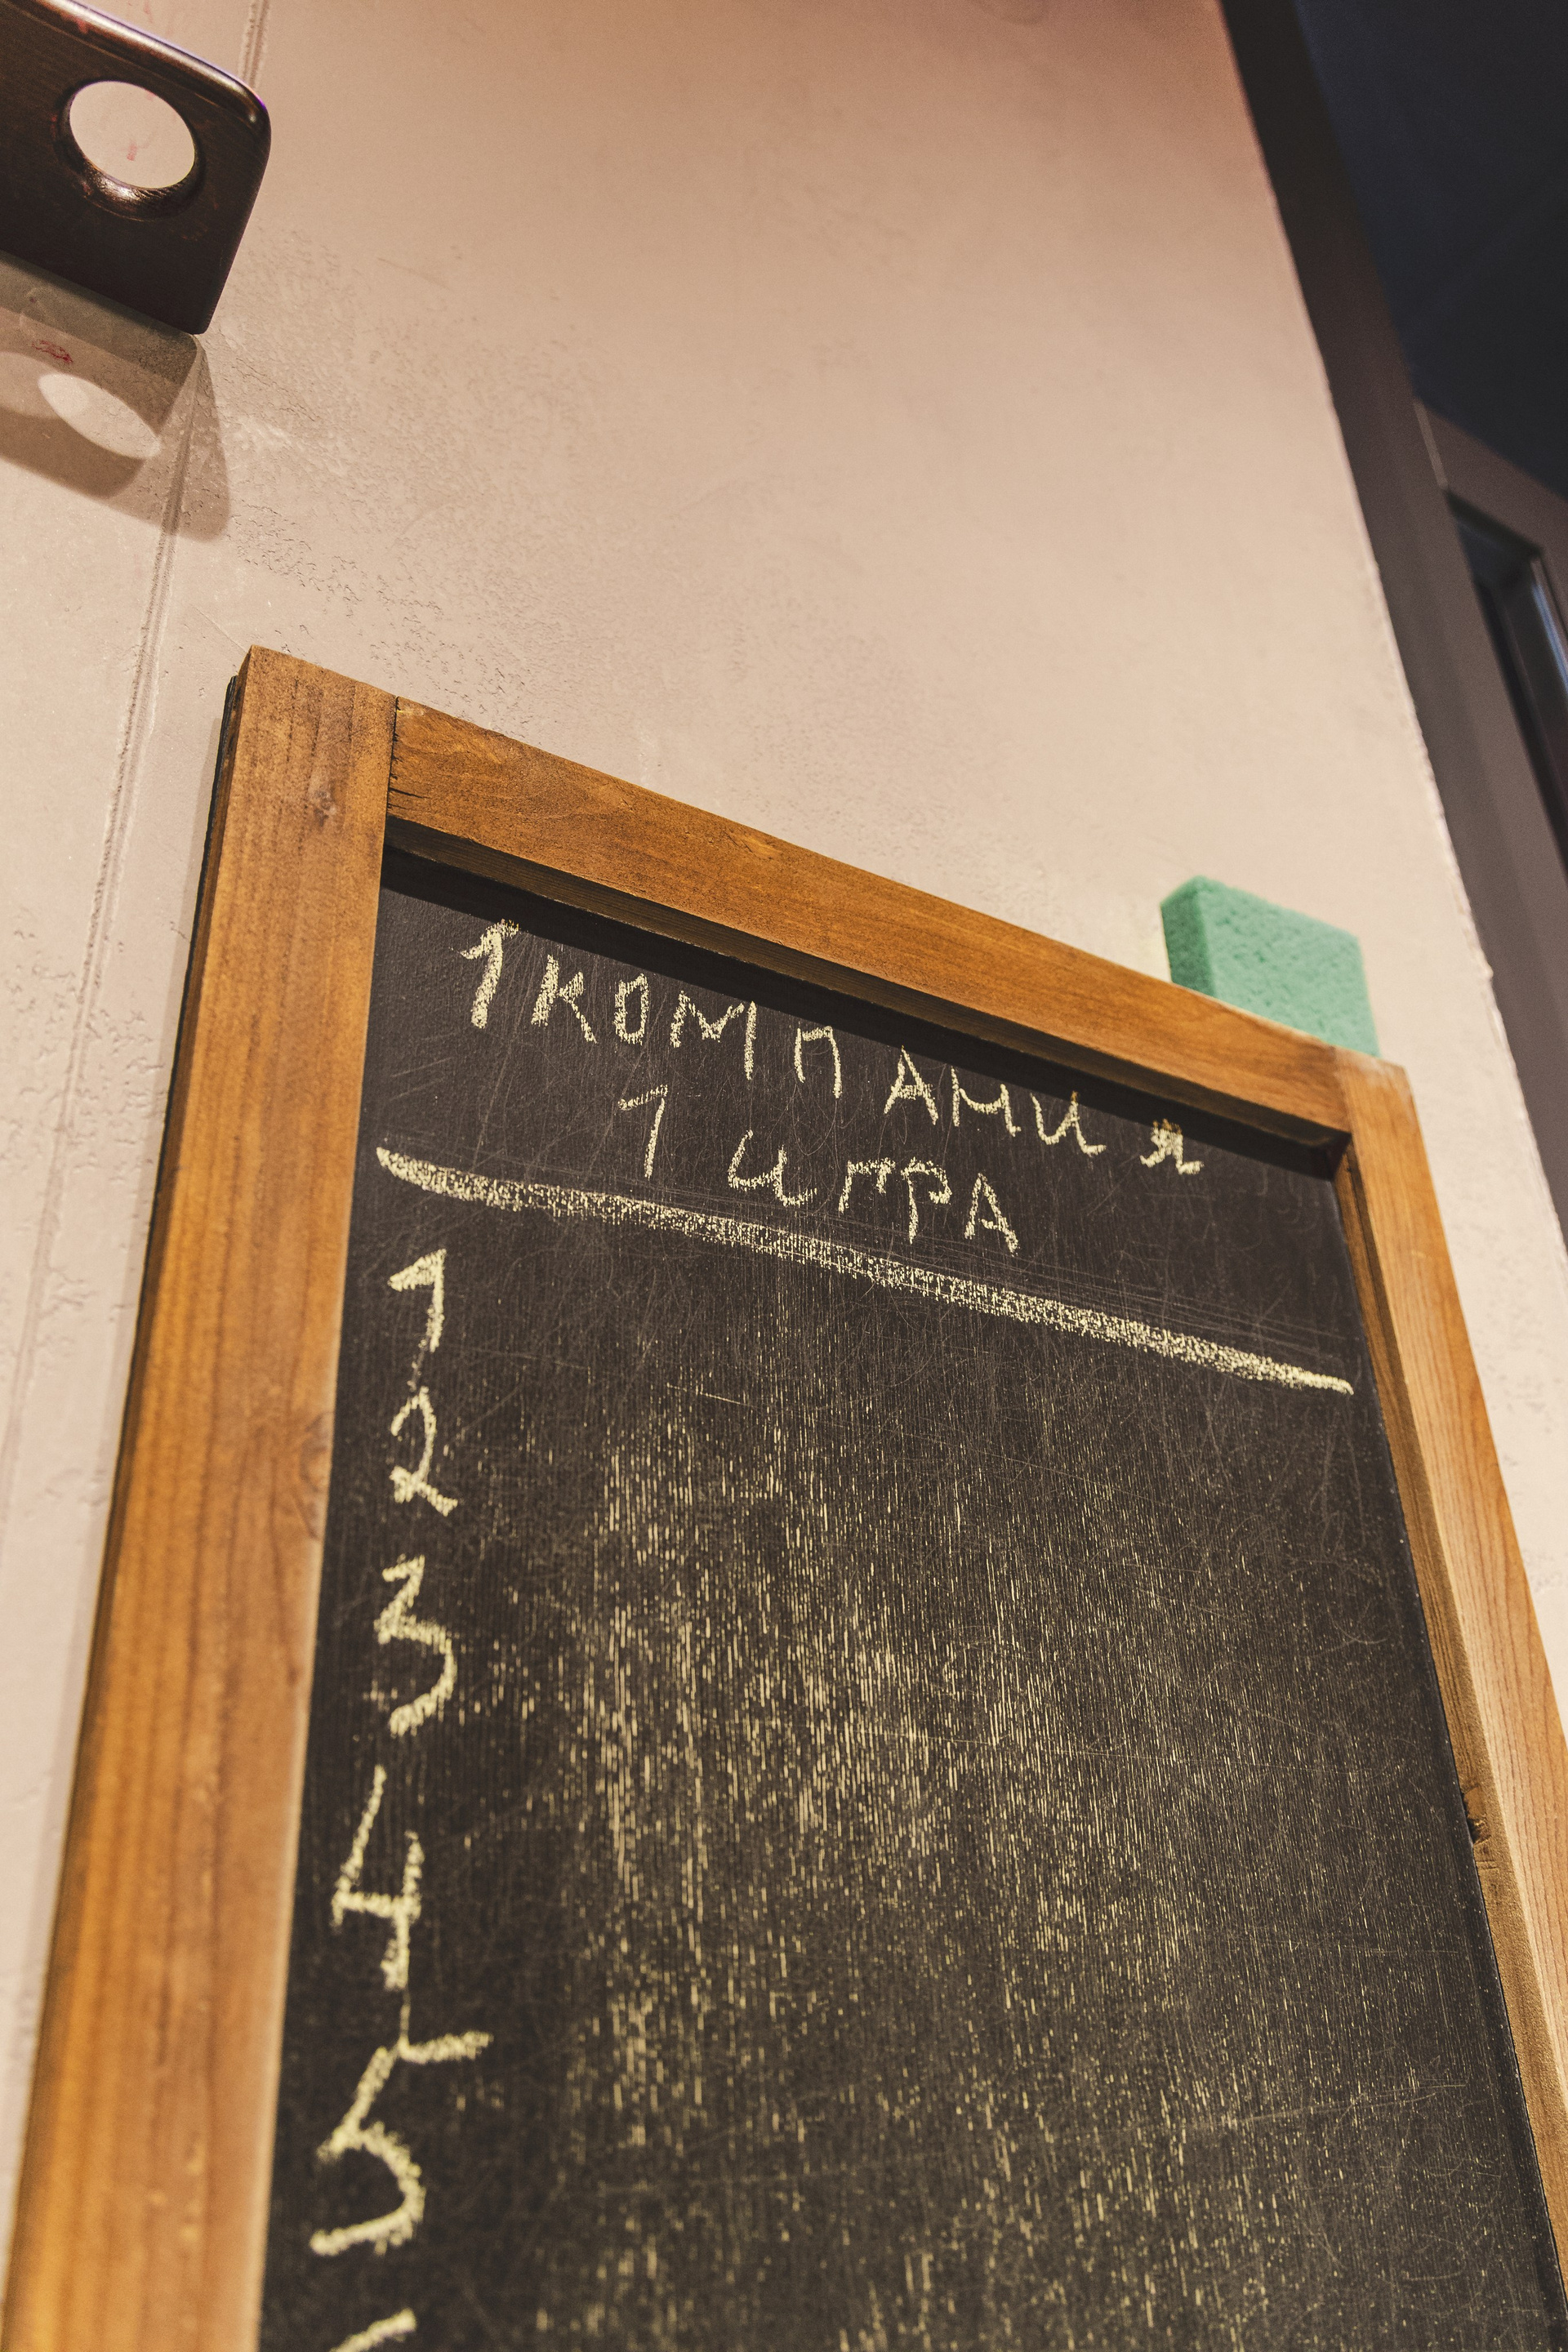 1 КОМПАНИЯ
1 ИГРА
1
2
3
4
5